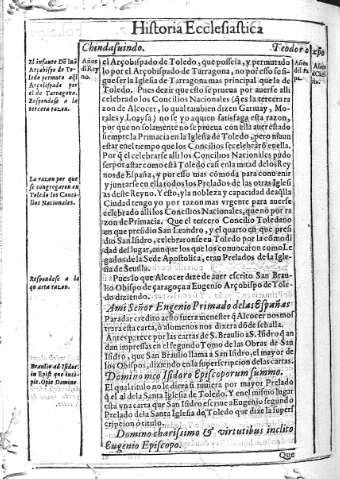 Historia Ecclesiastica
Chindasuindo.
Teodor o
Años de Rey
El infante Dō Iuā
Arçobispo de To-
ledo permuta aql
Arçobispado por
el de Tarragona.
Respondese a la
tercera razon.
el Arçobispado de Toledo, que posseìa, y permutado
lo por el Arçobispado de Tarragona, no por esso se si-
gue ser la Iglesia de Tarragona mas principal que la de
Toledo. Pues dezir que esto se prueua por auerse alli
celebrado los Concilios Nacionales (q̃ es la tercera ra
zon de Alcocer, lo qual tambien dizen Gariuay, Mo-
rales y Loysa) no se yo a quien satisfaga esta razon,
por que no solamente no se prueua con ella auer estado
siempre la Primacia en la Iglesia de Toledo, pero ni aun
estar en el tiempo que los Concilios se celebrarō en ella.
Por q̃ el celebrarse alli los Concilios Nacionales pudo
ser por estar como està Toledo casi en la mitad de los Rey
nos de España, y por esso mas comoda para conue-
nir y juntarse en ella todos los Prelados de las otras Iglesias
La razon por que
se congregaron en
Toledo los Conci-
lios Nacionales.
deste Reyno. Y esto, y la nobleza y capacidad de aq̃lla
Ciudad tengo yo por razon mas vrgente para auerse
celebrado alli los Concilios Nacionales, que nō por ra-
zon de Primacia. Que el tercero Concilio Toledano
en que presidio San Leandro, y el quarto en que pre-
sidio San Isidro, celebraronse en Toledo por la comodi
dad del lugar, aunque los que los conuocaron como Le-
gados de la Sede Apostolica, eran Prelados de la Igle-
sia de Seuilla.
Respondese a la
quarta razon.
Pues lo que Alcocer dize de auer escrito San Brau-
lio Obispo de çaragoça a Eugenio Arçobispo de Tole-
do diziendo.
Ami Señor Eugenio Primado de las Españas
Para dar credito a esto fuera menester q̃ Alcocer nos mos
trara esta carta, o alomenos nos dixera dōde se halla.
Antes parece por las cartas de S. Braulio a S. Isidro q̃ an
dan impressas en el segundo Tomo de las Obras de San
Isidro, que San Braulio llama a San Isidro, el mayor de
los Obispos, diziendo en la superscripcion de las cartas.
Braulio ad Isidor.
in Epist. que inci-
pit. Opto Domine.
Domino meo Isidoro Episcoporum summo.
El qual titulo no le diera si tuuiera por mayor Prelado
q̃ el al de la Santa Iglesia de Toledo. Y en el mismo lugar
esta vna carta que San Isidro escriue a Eugenio segundo
Prelado de la Santa Iglesia de Toledo que dize la super
scripcion ò titulo.
Domino charissimo & virtutibus inclito
Eugenio Episcopo.
Que